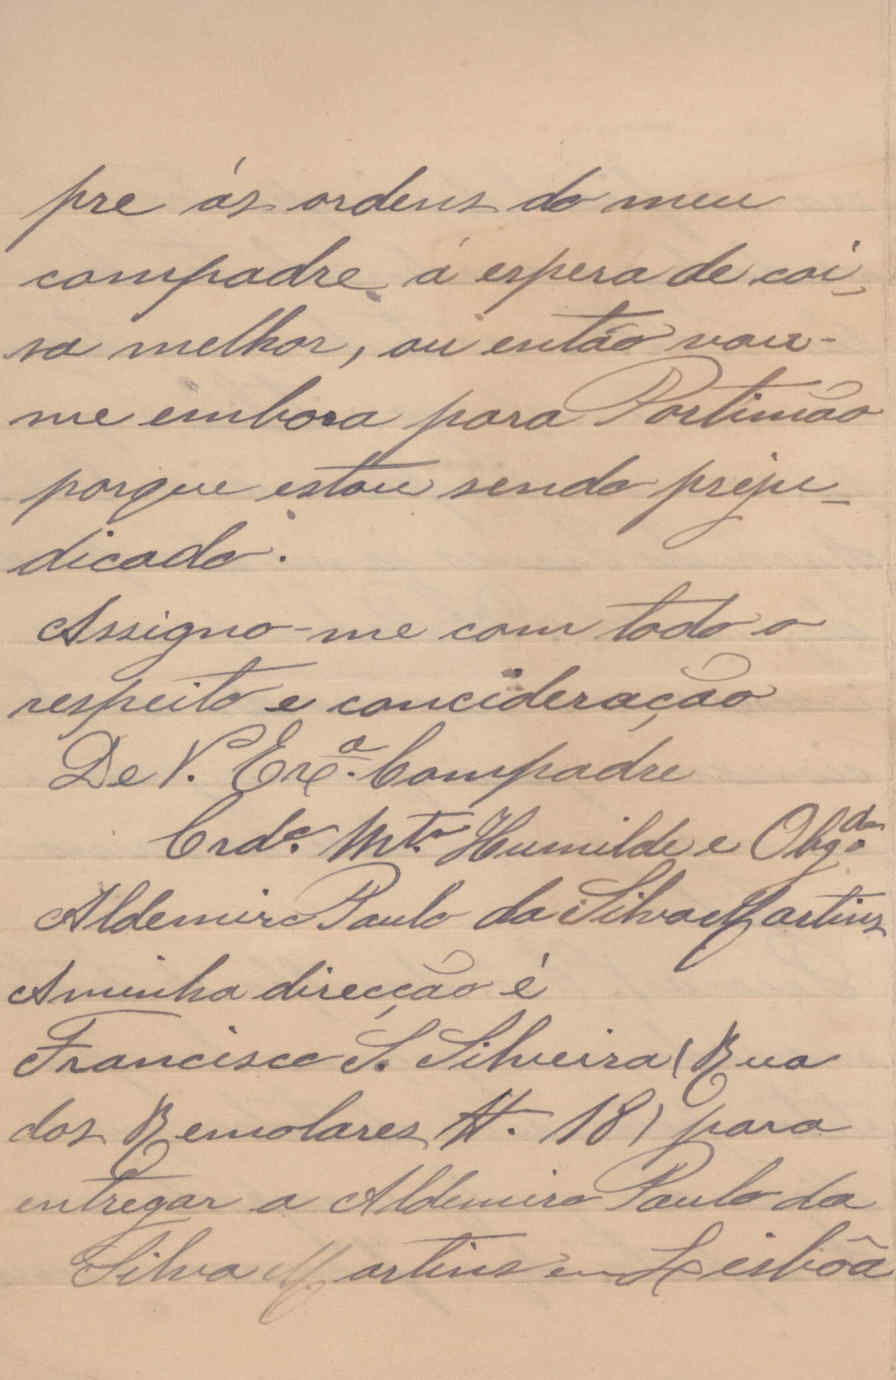 pre ás ordens do meu
compadre á espera de coi-
sa melhor, ou então vou-
me embora para Portimão
porque estou sendo preju-
dicado.
Assigno-me com todo o
respeito e concideração
De V. Exª. Compadre
Crdº. Mtº. Humilde e Obgdo.
Aldemiro Paulo da Silva Martins
A minha direcção é
Francisco S. Silveira (Rua
dos Remolares N. 18) para
entregar a Aldemiro Paulo da
Silva Martins em Lisbôa